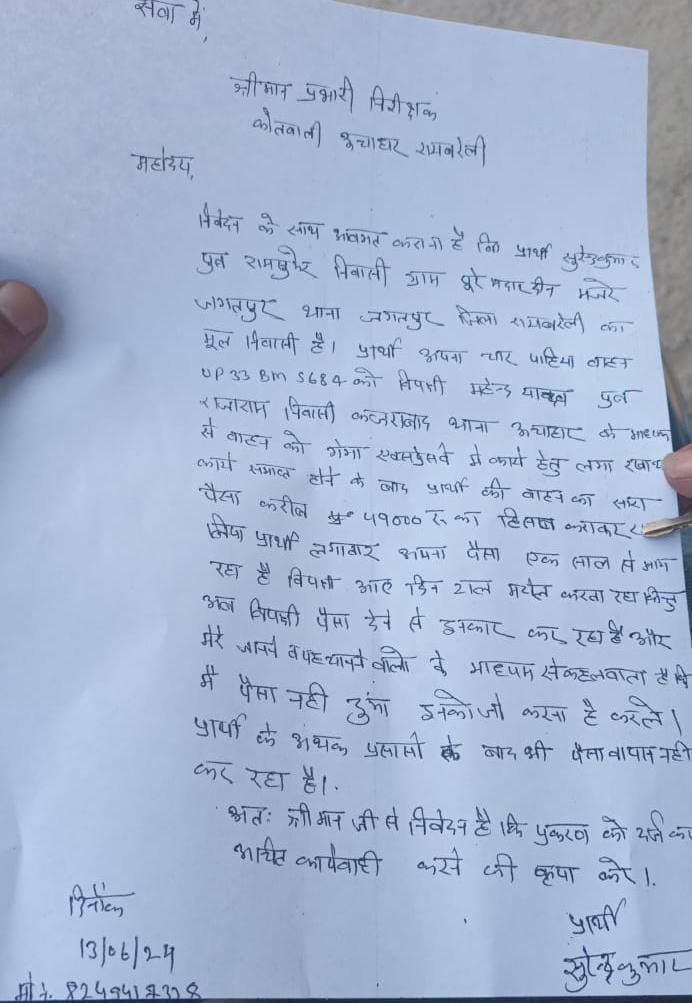 सेवा में,
श्रीमान प्रभारी निरीक्षक
कोतवाली ऊचाहार रायबरेली
महोदय,
निवेदन के साथ अवगत कराना है कि प्रार्थी सुरेन्द्रकुमार
पुत्र रामसुमेर निवासी ग्राम पूरे मदारदीन मजरे
जगतपुर थाना जगतपुर जिला रायबरेली का
मूल निवासी है। प्रार्थी अपना चार पाहिया वाहन
UP 33 BM 5684 को विपक्षी महेन्द्र यादव पुत्र
राजाराम निवासी थाना ऊचाहार के माध्यम
से वाहन को गंगा एक्सप्रेसवे मे कार्य हेतु लगा रखा था
कार्य समाप्त होने के बाद प्रार्थी की वाहन का सारा
पैसा करीब 49000 रू का हिसाब कराकर
लिया प्रार्थी लगातार अपना पैसा एक साल से माग
रहा है विपक्षी आए दिन टाल मटोल करता रहा किन्तु
अब विपक्षी पैसा देने से इनकार कर रहा है और
मेरे जानने व पहचानने वालो के माध्यम से कहलवाता है कि
मै पैसा नही दुंगा इनको जो करना है करले।
प्रार्थी के अथक प्रयासो के बाद भी पैसा वापस नही
कर रहा है।
अतः श्रीमान जी से निवेदन है कि प्रकरण को दर्ज कर
उचित कार्यवाही करने की कृपा करे।
दिनाँक
13/06/24
प्रार्थी
सुरेन्द्रकुमार
मो नं.